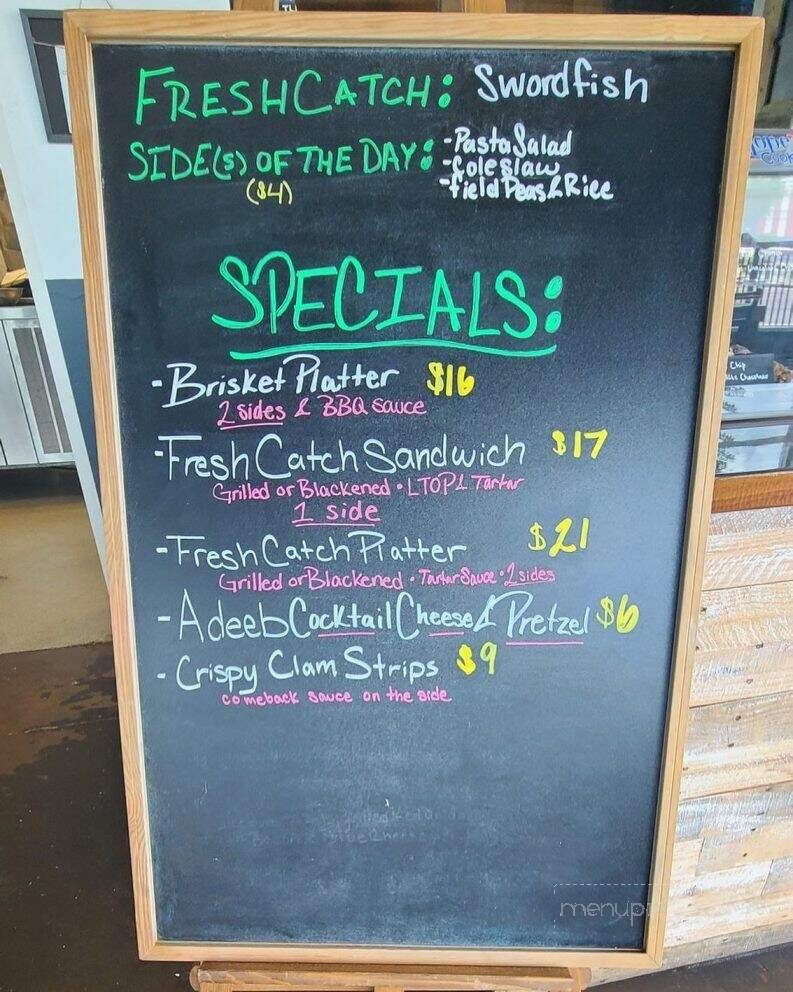 FRESH CATCH: Swordfish
SIDE(S) OF THE DAY: - Pasta Salad
($4) - Coleslaw
- Field Peas & Rice
SPECIALS:
- Brisket Platter $16
2 sides & BBQ sauce
- Fresh Catch Sandwich $17
Grilled or Blackened • LTOP & Tartar
1 side
- Fresh Catch Platter $21
Grilled or Blackened • Tartar Sauce • 2 sides
- Adeeb Cocktail Cheese & Pretzel $6
- Crispy Clam Strips $9
comeback sauce on the side
Chip
menupi